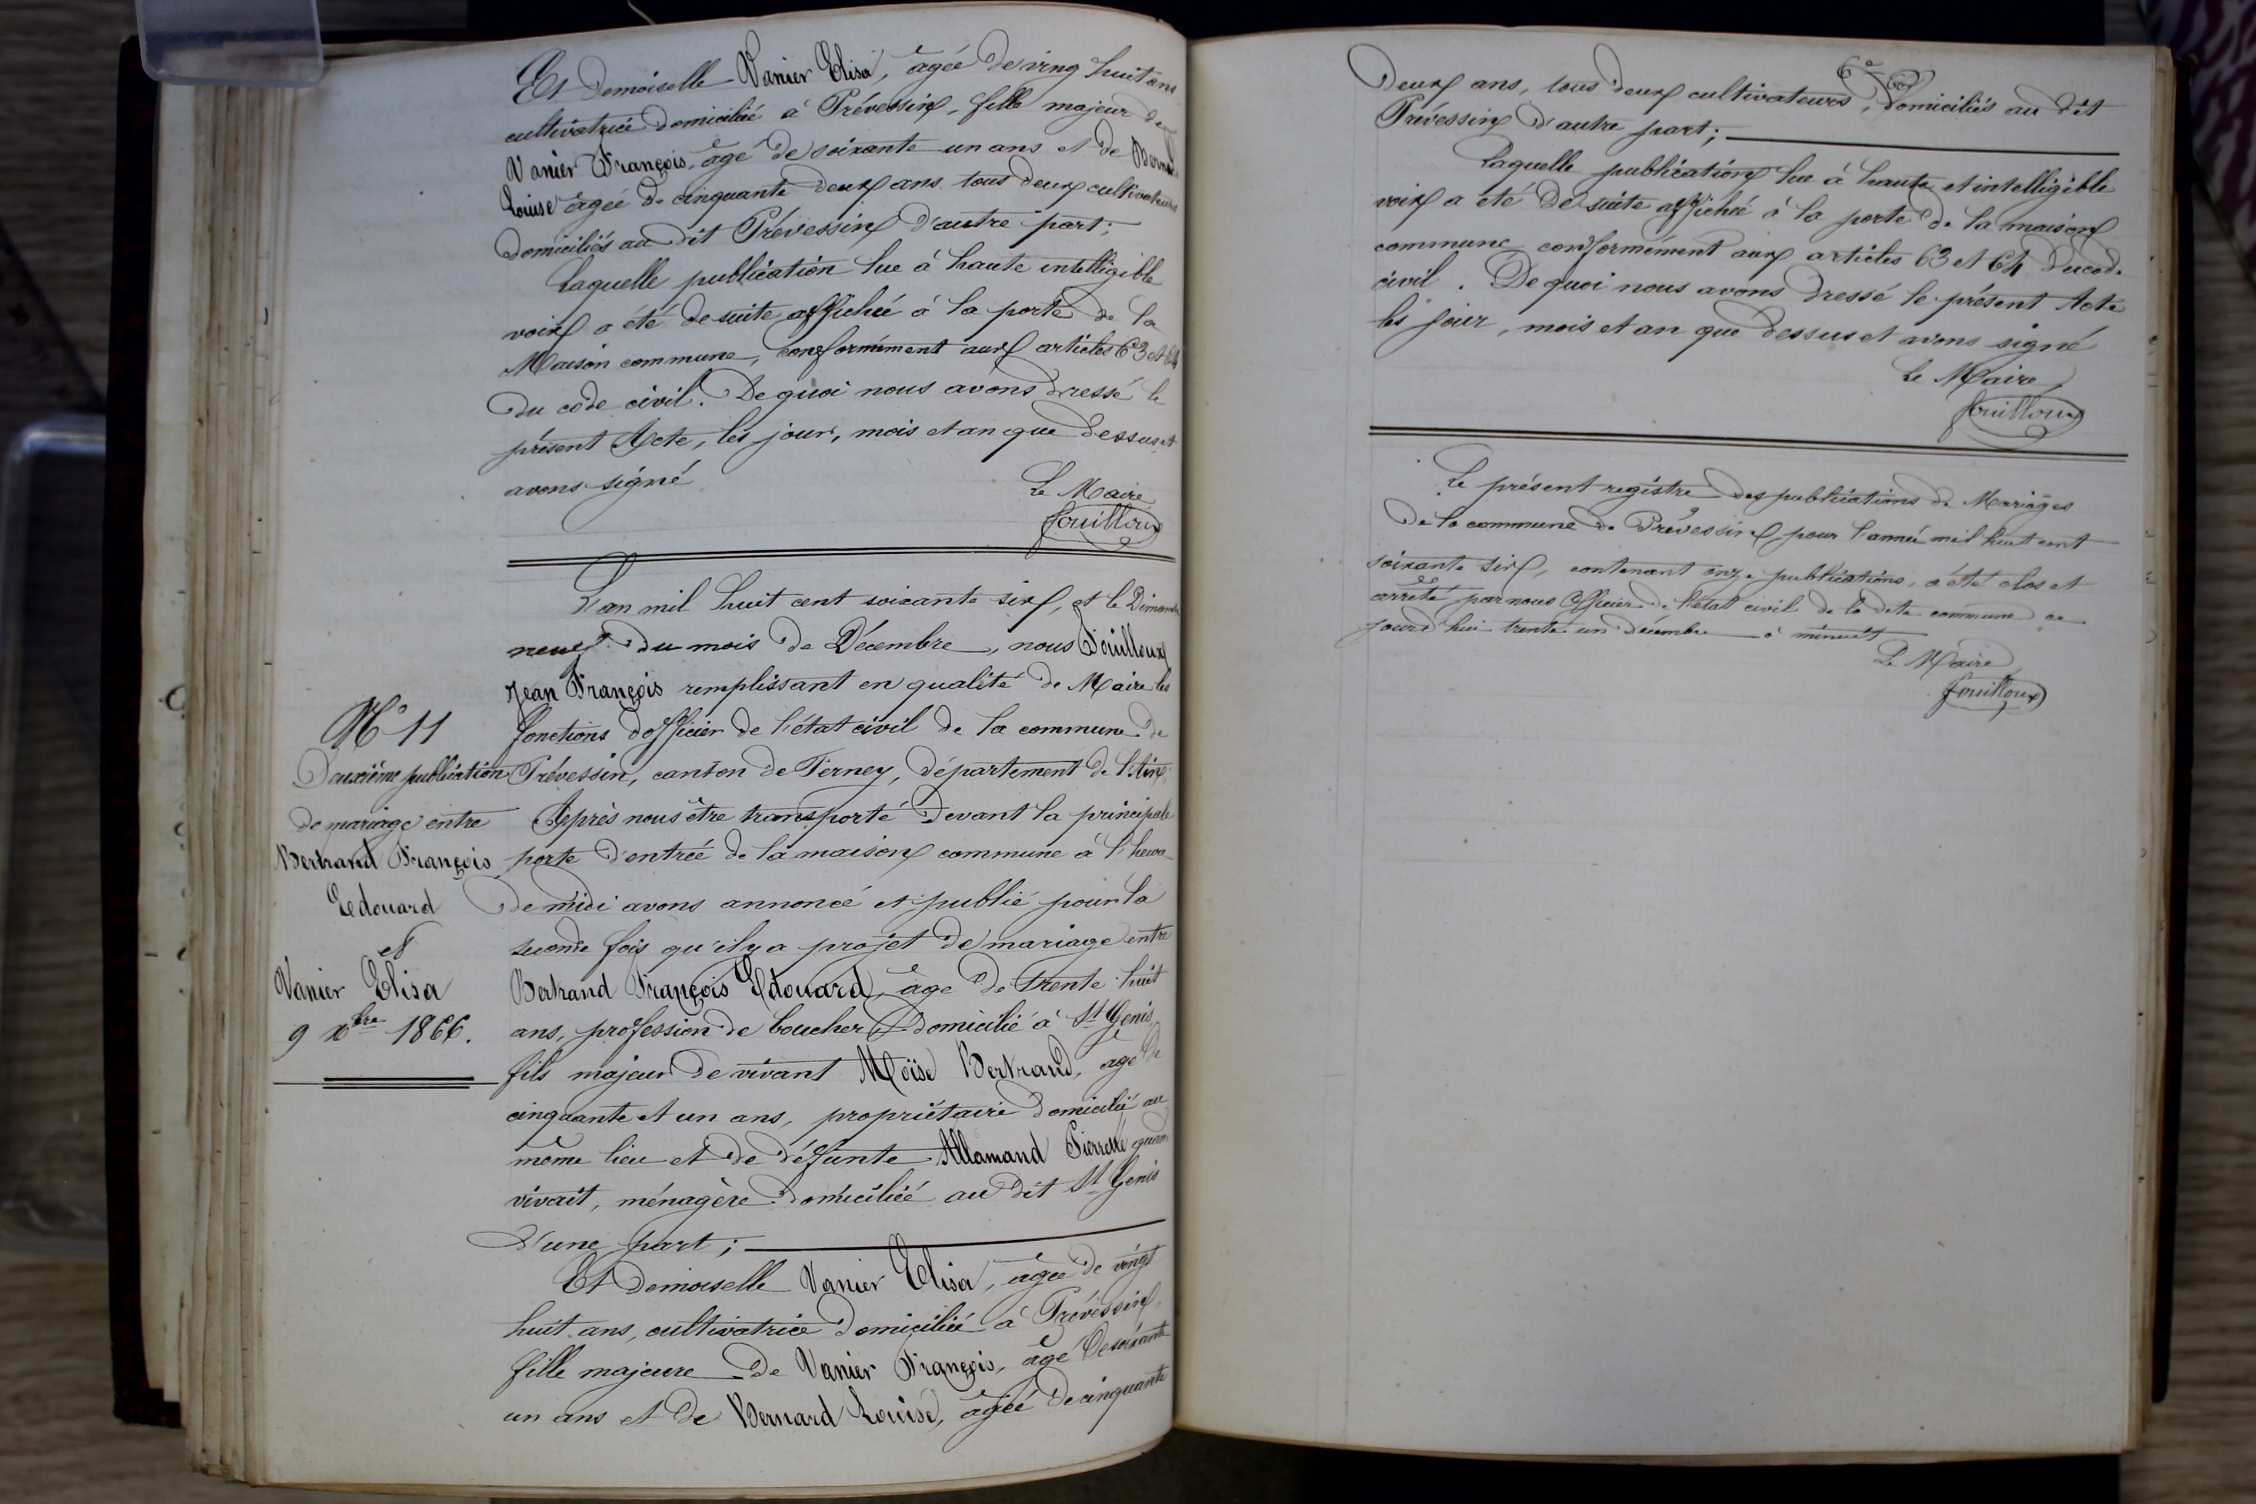 Et Demoiselle Vanier Elisa, agée de ving huit ans
cultivatrice domiciliée à Prévessin, fille majeur de
Vanier François, âgé de soixante un ans et de Bernard
Louise âgée de cinquante deux ans tous deux cultivateurs
domiciliés au dit Prévessin d'autre part;
Laquelle publication lue à haute intelligible
voix a été de suite affichée à la porte de la
Maison commune, conformément aux articles 63 et 64
du code civil. De quoi nous avons dressé le
présent Acte, les jour, mois et an que dessus et
avons signé
Le Maire
fouilloux
L'an mil huit cent soixante six, et le Dimanche
neuf du mois de Décembre, nous Fouilloux
Jean François remplissant en qualité de Maire les
fonctions d'officier de l'état civil de la commune de
Prévessin, canton de Ferney, département de l'Ain;
Après nous être transporté devant la principale
porte d'entrée de la maison commune à l'heure
de midi avons annoncé et publié pour la
seconde fois qu'il y a projet de mariage entre
Bertrand François Edouard, âge de trente huit
ans, profession de boucher domicilié à St Genis
fils majeur de vivant Moïse Bertrand, âgé de
cinquante et un ans, propriétaire domicilié au
même lieu et de défunte Allamand Pierrette quand
vivait, ménagère domiciliée au dit St Genis
d'une part;
Et Demoiselle Vanier Elisa, âgée de vingt
huit ans, cultivatrice domiciliée à Prévessin,
fille majeure de Vanier François, âgé de soixante
un ans et de Bernard Louise, âgée de cinquante
No 11
Deuxième publication
de mariage entre
Bertrand François
Edouard
et
Vanier Elisa
9 xbre 1866.
6e
deux ans, tous deux cultivateurs, domiciliés au dit
Prévessin d'autre part;
Laquelle publication lue à haute et intelligible
voix a été de suite affichée à la porte de la maison
commune conformément aux articles 63 et 64 du code
civil. De quoi nous avons dressé le présent Acte
les jour, mois et an que dessus et avons signé
Le Maire
fouilloux
Le présent registre des publications de Mariages
de la commune de Prévessin pour l'année mil huit cent
soixante six, contenant onze publications, a été clos et
arrêté par nous Officier de l'état civil de la dite commune ce
jourd'hui trente un décembre à minuit
Le Maire
fouilloux